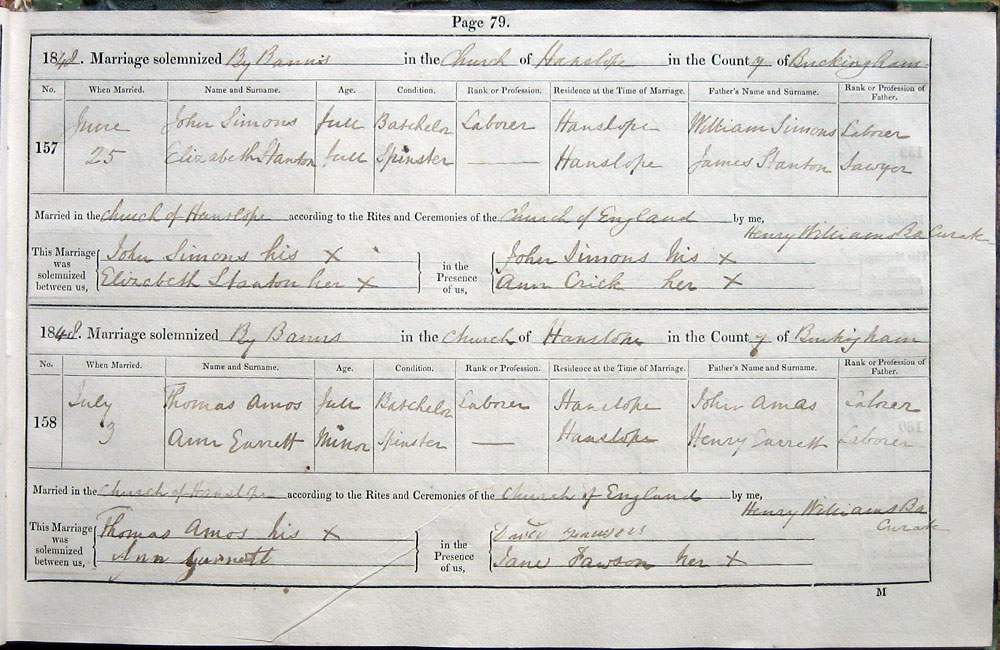 Page 79.
1848. Marriage solemnized By Banns in the Church of Hanslope in the County of Buckingham
No. When Married. Name and Surname. Age. Condition. Rank or Profession. Residence at the Time of Marriage. Father's Name and Surname. Rank or Profession of Father.
157 June 25 John Simons full Batchelor Laborer Hanslope William Simons Laborer
Elizabeth Stanton full Spinster — Hanslope James Stanton Sawyer
Married in the Church of Hanslope according to the Rites and Ceremonies of the Church of England by me,
Henry Williams Ba Curate
This Marriage was solemnized between us, John Simons his X in the Presence of us, John Simons his X
Elizabeth Stanton her X Ann Crick her X
1848. Marriage solemnized By Banns in the Church of Hanslope in the County of Buckingham
No. When Married. Name and Surname. Age. Condition. Rank or Profession. Residence at the Time of Marriage. Father's Name and Surname. Rank or Profession of Father.
158 July 3 Thomas Amos full Batchelor Laborer Hanslope John Amas Laborer
Ann Garrett Minor Spinster — Hanslope Henry Garrett Laborer
Married in the Church of Hanslope according to the Rites and Ceremonies of the Church of England by me,
Henry Williams Ba
Curate
This Marriage was solemnized between us, Thomas Amos his X in the Presence of us, David
Ann Jane Fawson her X
M